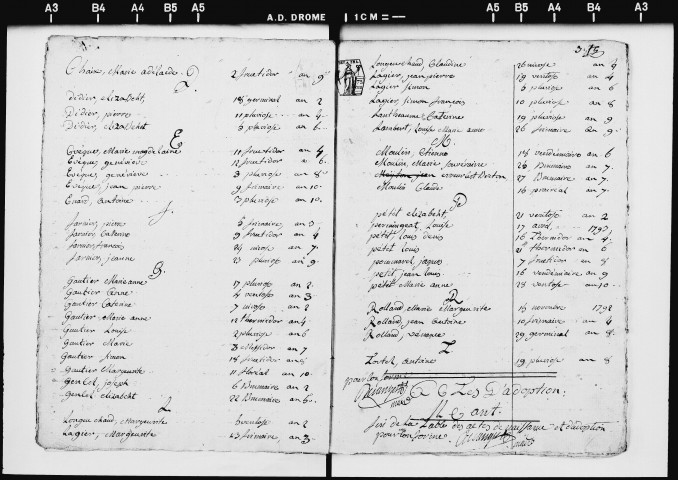 A3 B4 A4 B5 A5 A.D. DROME 1 CM = A5 B5 A4 B4 A3
Chaix, Marie adelaide 2 fructidor an 9
Didier, Elizabeht, 18 germinal an 2
Didier, pierre 11 pluviose an 4
Didier, Elizabeht 5 pluviose an 6
E
Eveque, Marie magdelaine 11 fructidor an 4
Eveque, genevieve 12 fructidor a 6
Eveque, genevieve 3 pluviose an 8
Eveque, jean pierre 9 frimaire an 10
antoine 13 pluviose an 10
J
Janvier, pierre 5 frimaire an 3
Janvier, Caterine 9 fructidor an 4
Janvier, francois 24 nivose an 7
Janvier, jeanne an 9
G
Gautier Marie anne 17 an 2
Gautier 4 ventose an 3
Gautier Caterine 7 nivose an 2
Gautier Marie anne 12 thermidor an 4
Gautier Louise 2 pluviose an 6
Gautier Marie 8 Messidor an 7
Gautier Simon 18 fructidor an
Gautier Marguerite 11 floréal an 10
Gentel, joseph 6 Brumaire an 2
Gentel elizabeht 22 Brumaire an 6
L
Longuechaud, Marguerite 6 ventose an 2
Lagier, Marguerite 23 frimaire an 3
Longuechaud, Claudine 26 nivose an 4
Lagier, jean pierre 19 ventose an 4
Lagier Simon 5 pluviose an 6
Lagier, Simon François 10 pluviose an 8
Caterine 19 pluviose an 9
Lambert, Louise Marie anne 26 frimaire an 9
M
Moulin, Etienne 18 vendémiaire an 6
Moulin, Marie 28 Brumaire an 7
jean 27 Brumaire an 7
Claude 16 prairial an 7
P
petit elizabeht, 21 ventose an 2
Louise 17 avril 1793
petit, Louis 16 thermidor an 4
petit Louis 21 thermidor an 6
jaques 7 fructidor an 8
petit, jean louis 16 vendémiaire an 9
petit Marie anne 28 ventose an 10
R
Rolland, Marie Marguerite 18 novembre 1792
Rolland, jean antoine 10 frimaire an 4
Rolland, 29 germinal an 8
antoine 19 pluviose an 8
pour
actes D'adoption
Neant
fin de la Table des actes de naissance et d'adoption
pour